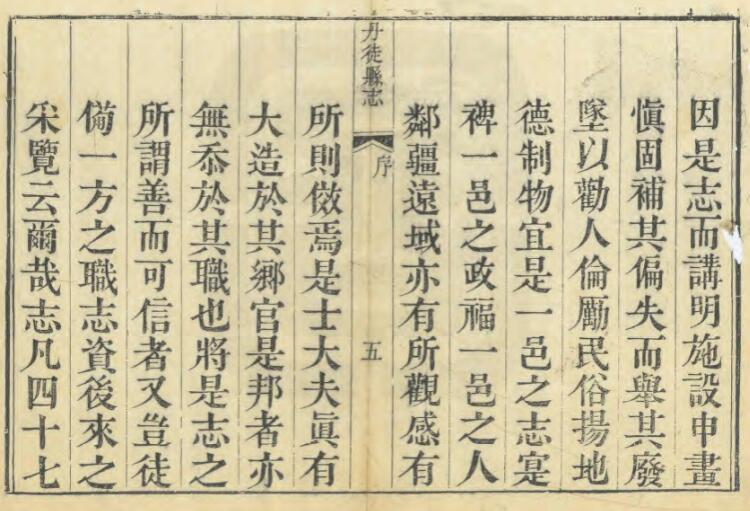 因是志而講明施設申畫
愼固補其偏失而舉其廢
墜以勸人倫勵民俗揚地
德制物宜是一邑之志寔
裨一邑之政福一邑之人
鄰疆遠域亦有所觀感有
丹徒縣志
序
五
所則傚焉是士大夫眞有
大造於其鄉官是邦者亦
無忝於其職也將是志之
所謂善而可信者又豈徒
備一方之職志資後來之
采覽云爾哉志凡四十七